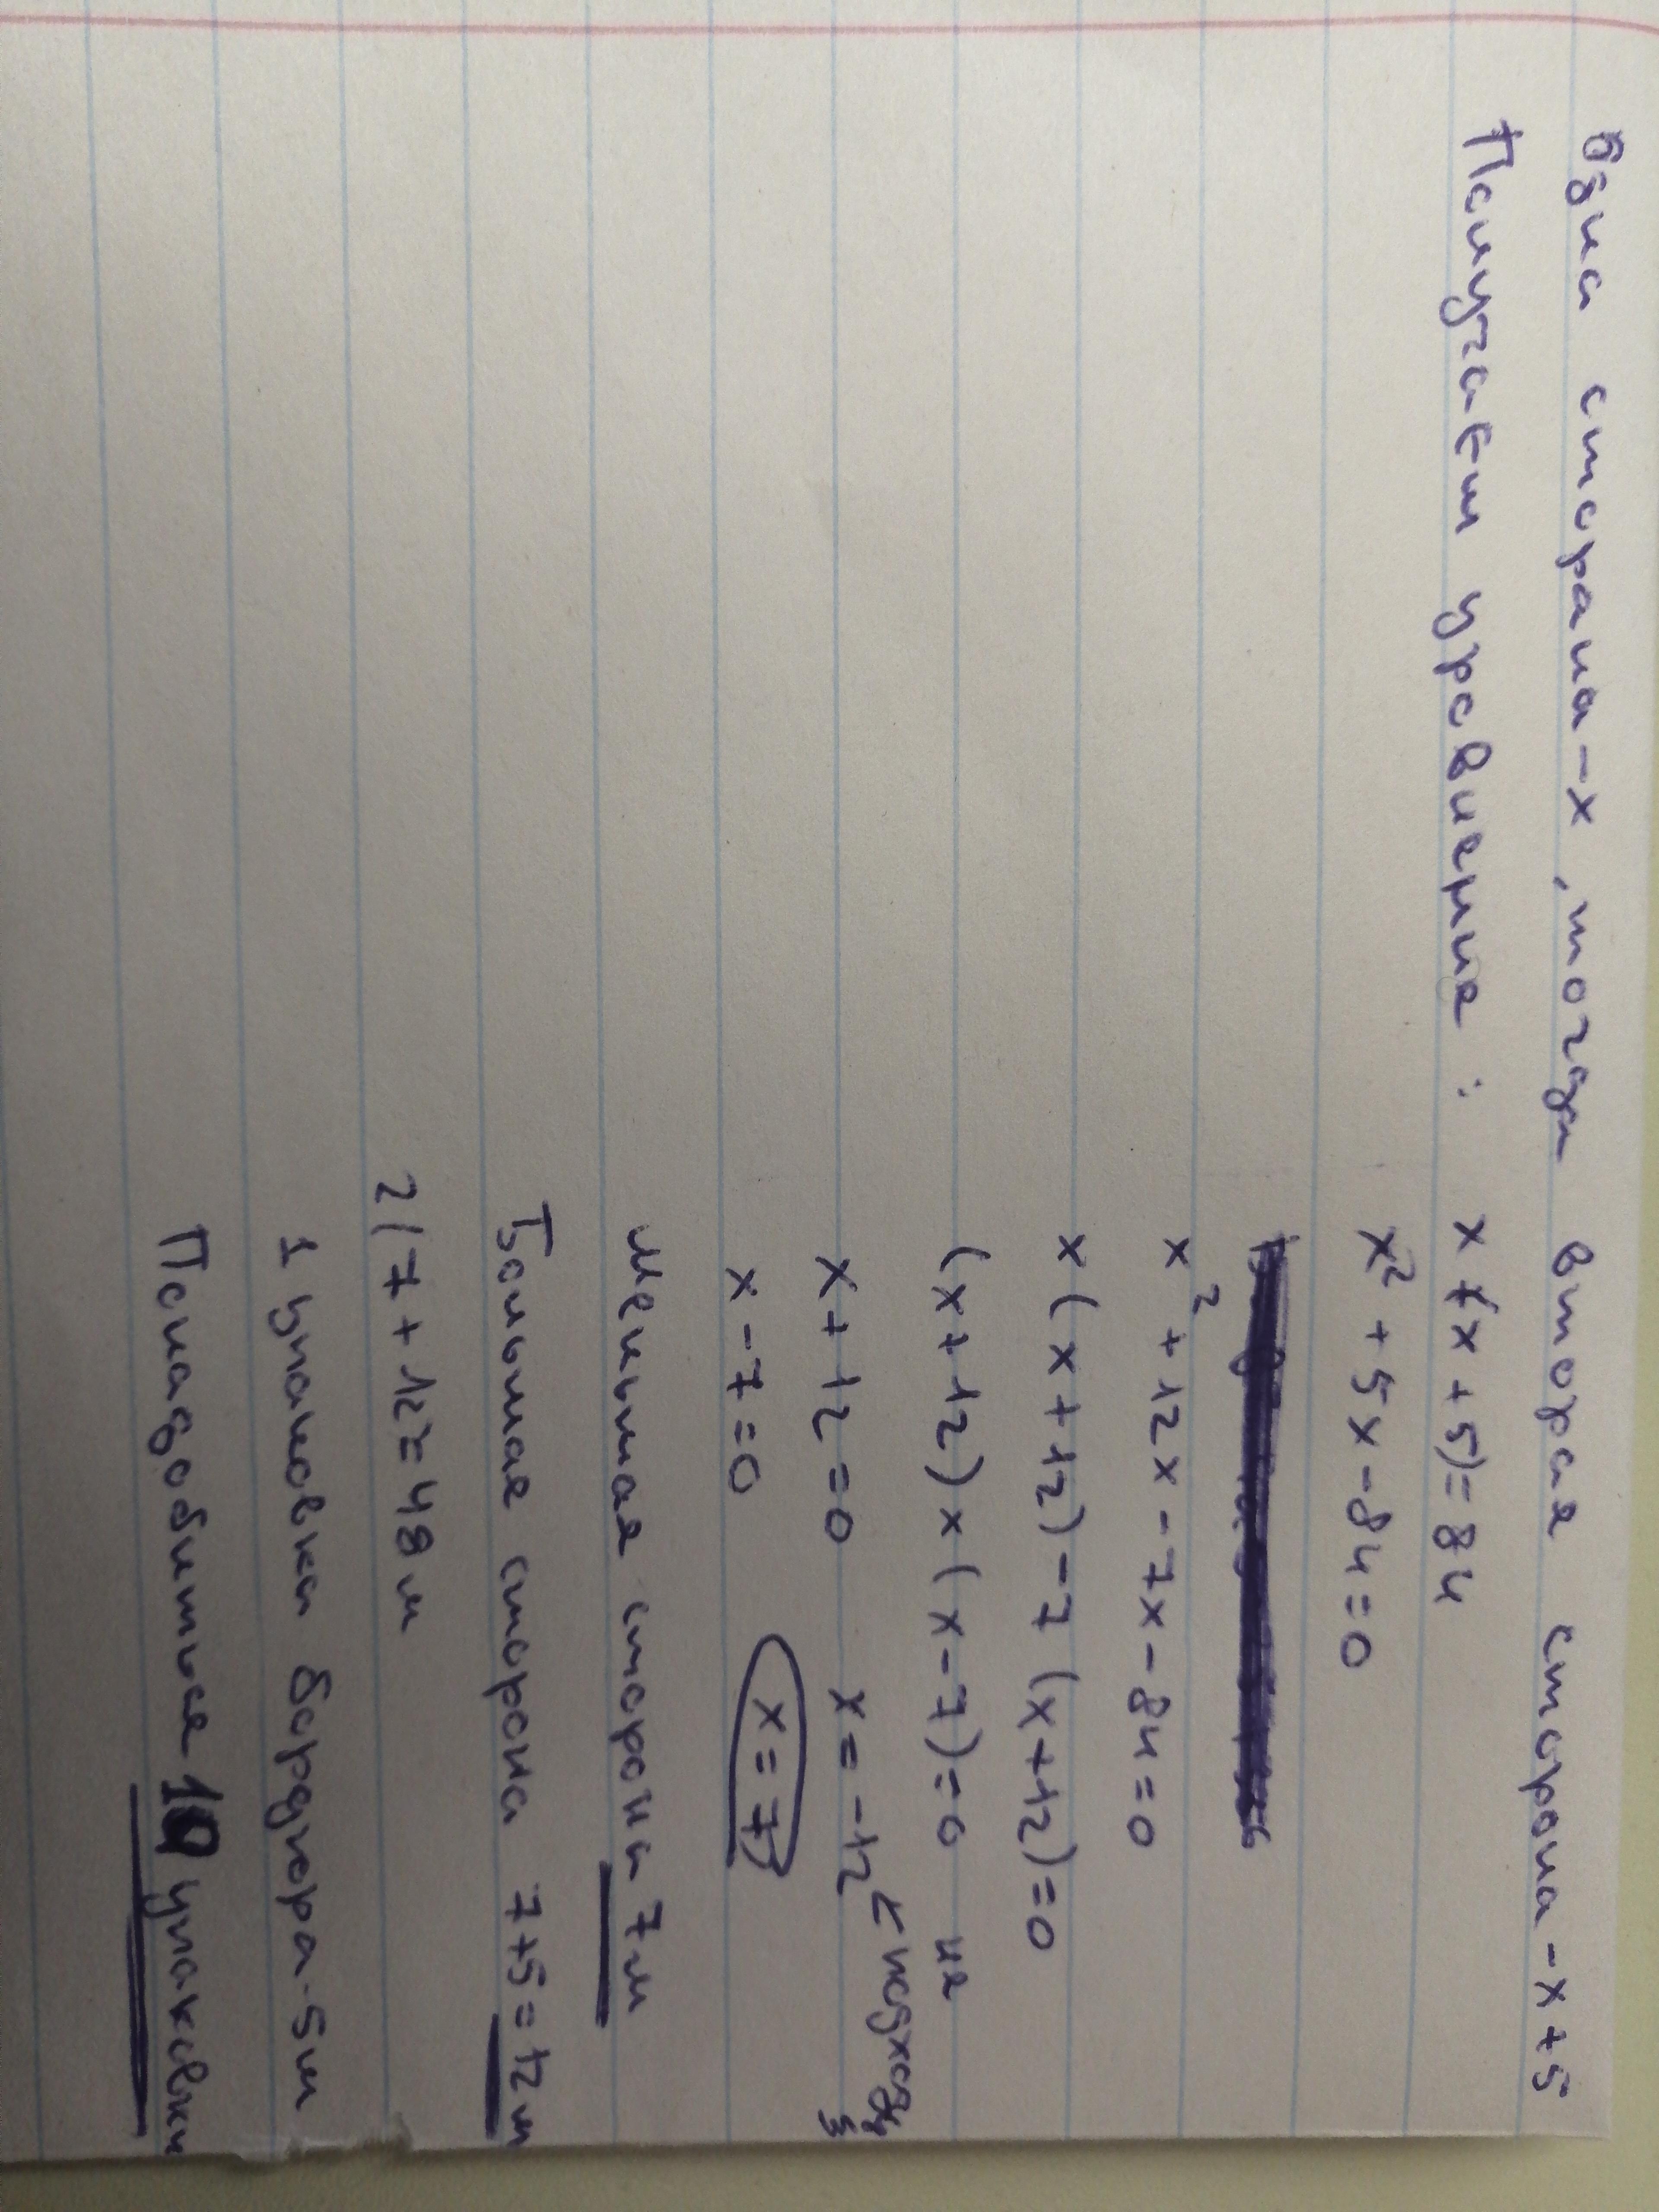 Одна сторона - x, тогда вторая сторона - x + 5
Получаем уравнение : x (x + 5) = 84
x² + 5x - 84 = 0
x² + 12x - 7x - 84 = 0
x (x + 12) - 7 (x + 12) = 0
(x + 12) x (x - 7) = 0
x + 12 = 0 x = -12 < не подходит
x - 7 = 0 x = 7
Меньшая сторона 7м
Большая сторона 7+5 = 12м
2(7 + 12 = 48 м
1 упаковка бордюра - 5м
Понадобиться 10 упаковки